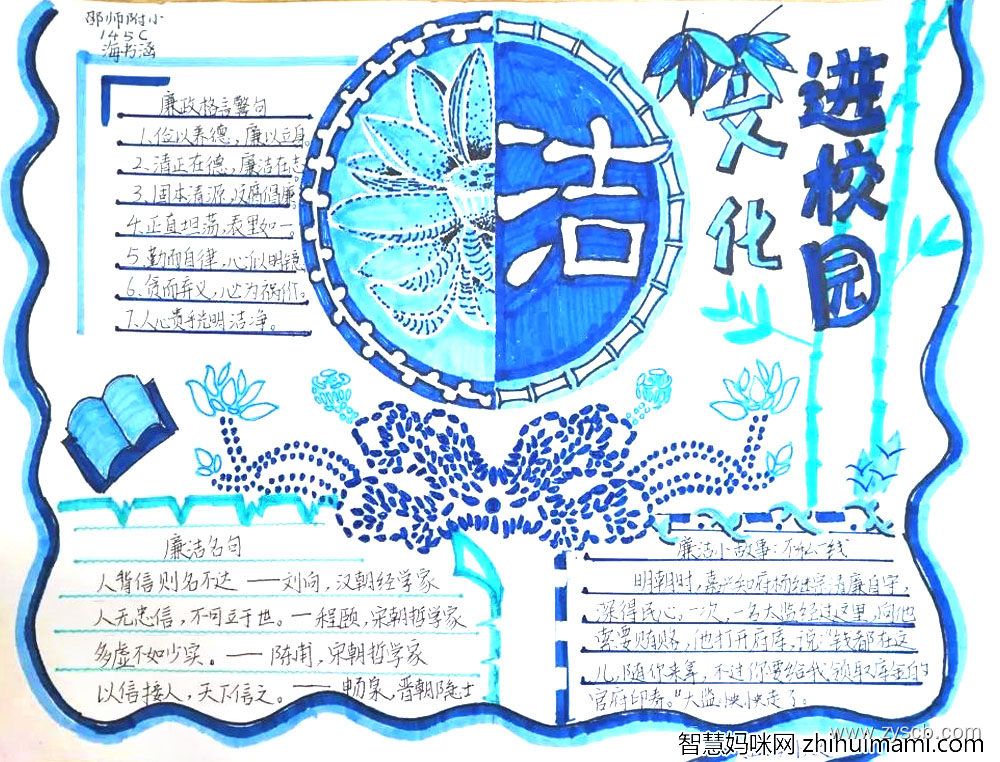 邵师附小
145C
海书涵
廉政格言警句
1.俭以养德，廉以立身。
2.清正在德，廉洁在志。
3.固本清源，反腐倡廉
4.正直坦荡，表里如一。
5.勤而自律，心以明镜
6.贪而弃义，必为祸作。
7.人心贵乎光明洁净。
洁
文化
进校园
廉洁名句
人背信则名不达 ——刘向，汉朝经学家
人无忠信，不可立于世。—程颐，宋朝哲学家
多虚不如少实。——陈甫，宋朝哲学家
以信接人，天下信之。——畅泉，晋朝隐士
廉洁小故事：不私一线
明朝时，嘉兴知府杨继宗清廉自守，
深得民心，一次，一名太监经过这里，向他
索要贿赂，他打开府库，说：“钱都在这
儿，随你来拿，不过你要给我领取库金的
官府印券。”太监怏怏走了。
www.zyscb.com
智慧妈咪网 zhihuimami.com